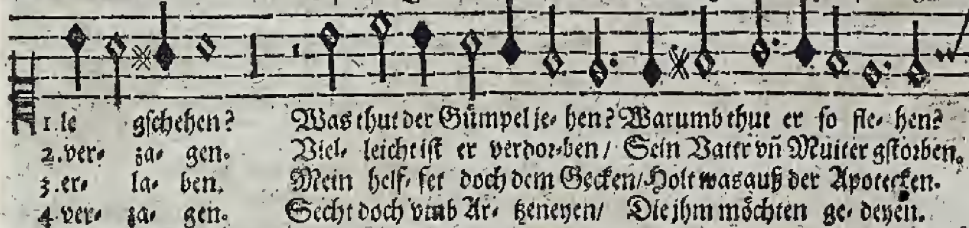 1. le gschehen? Was thut der Gümpel je- hen? Warumb thut er so fle- hen?
2. ver- za- gen. Viel- leicht ist er verdor-ben / Sein Vatter vñ Mutter gstorben.
3. er- la- ben. Mein helf- fet doch dem Gecken / Holt was auß der Apotecken.
4. ver- za- gen. Secht doch vmb Ar- tzeneyen / Die jhm möchten ge- deyen.